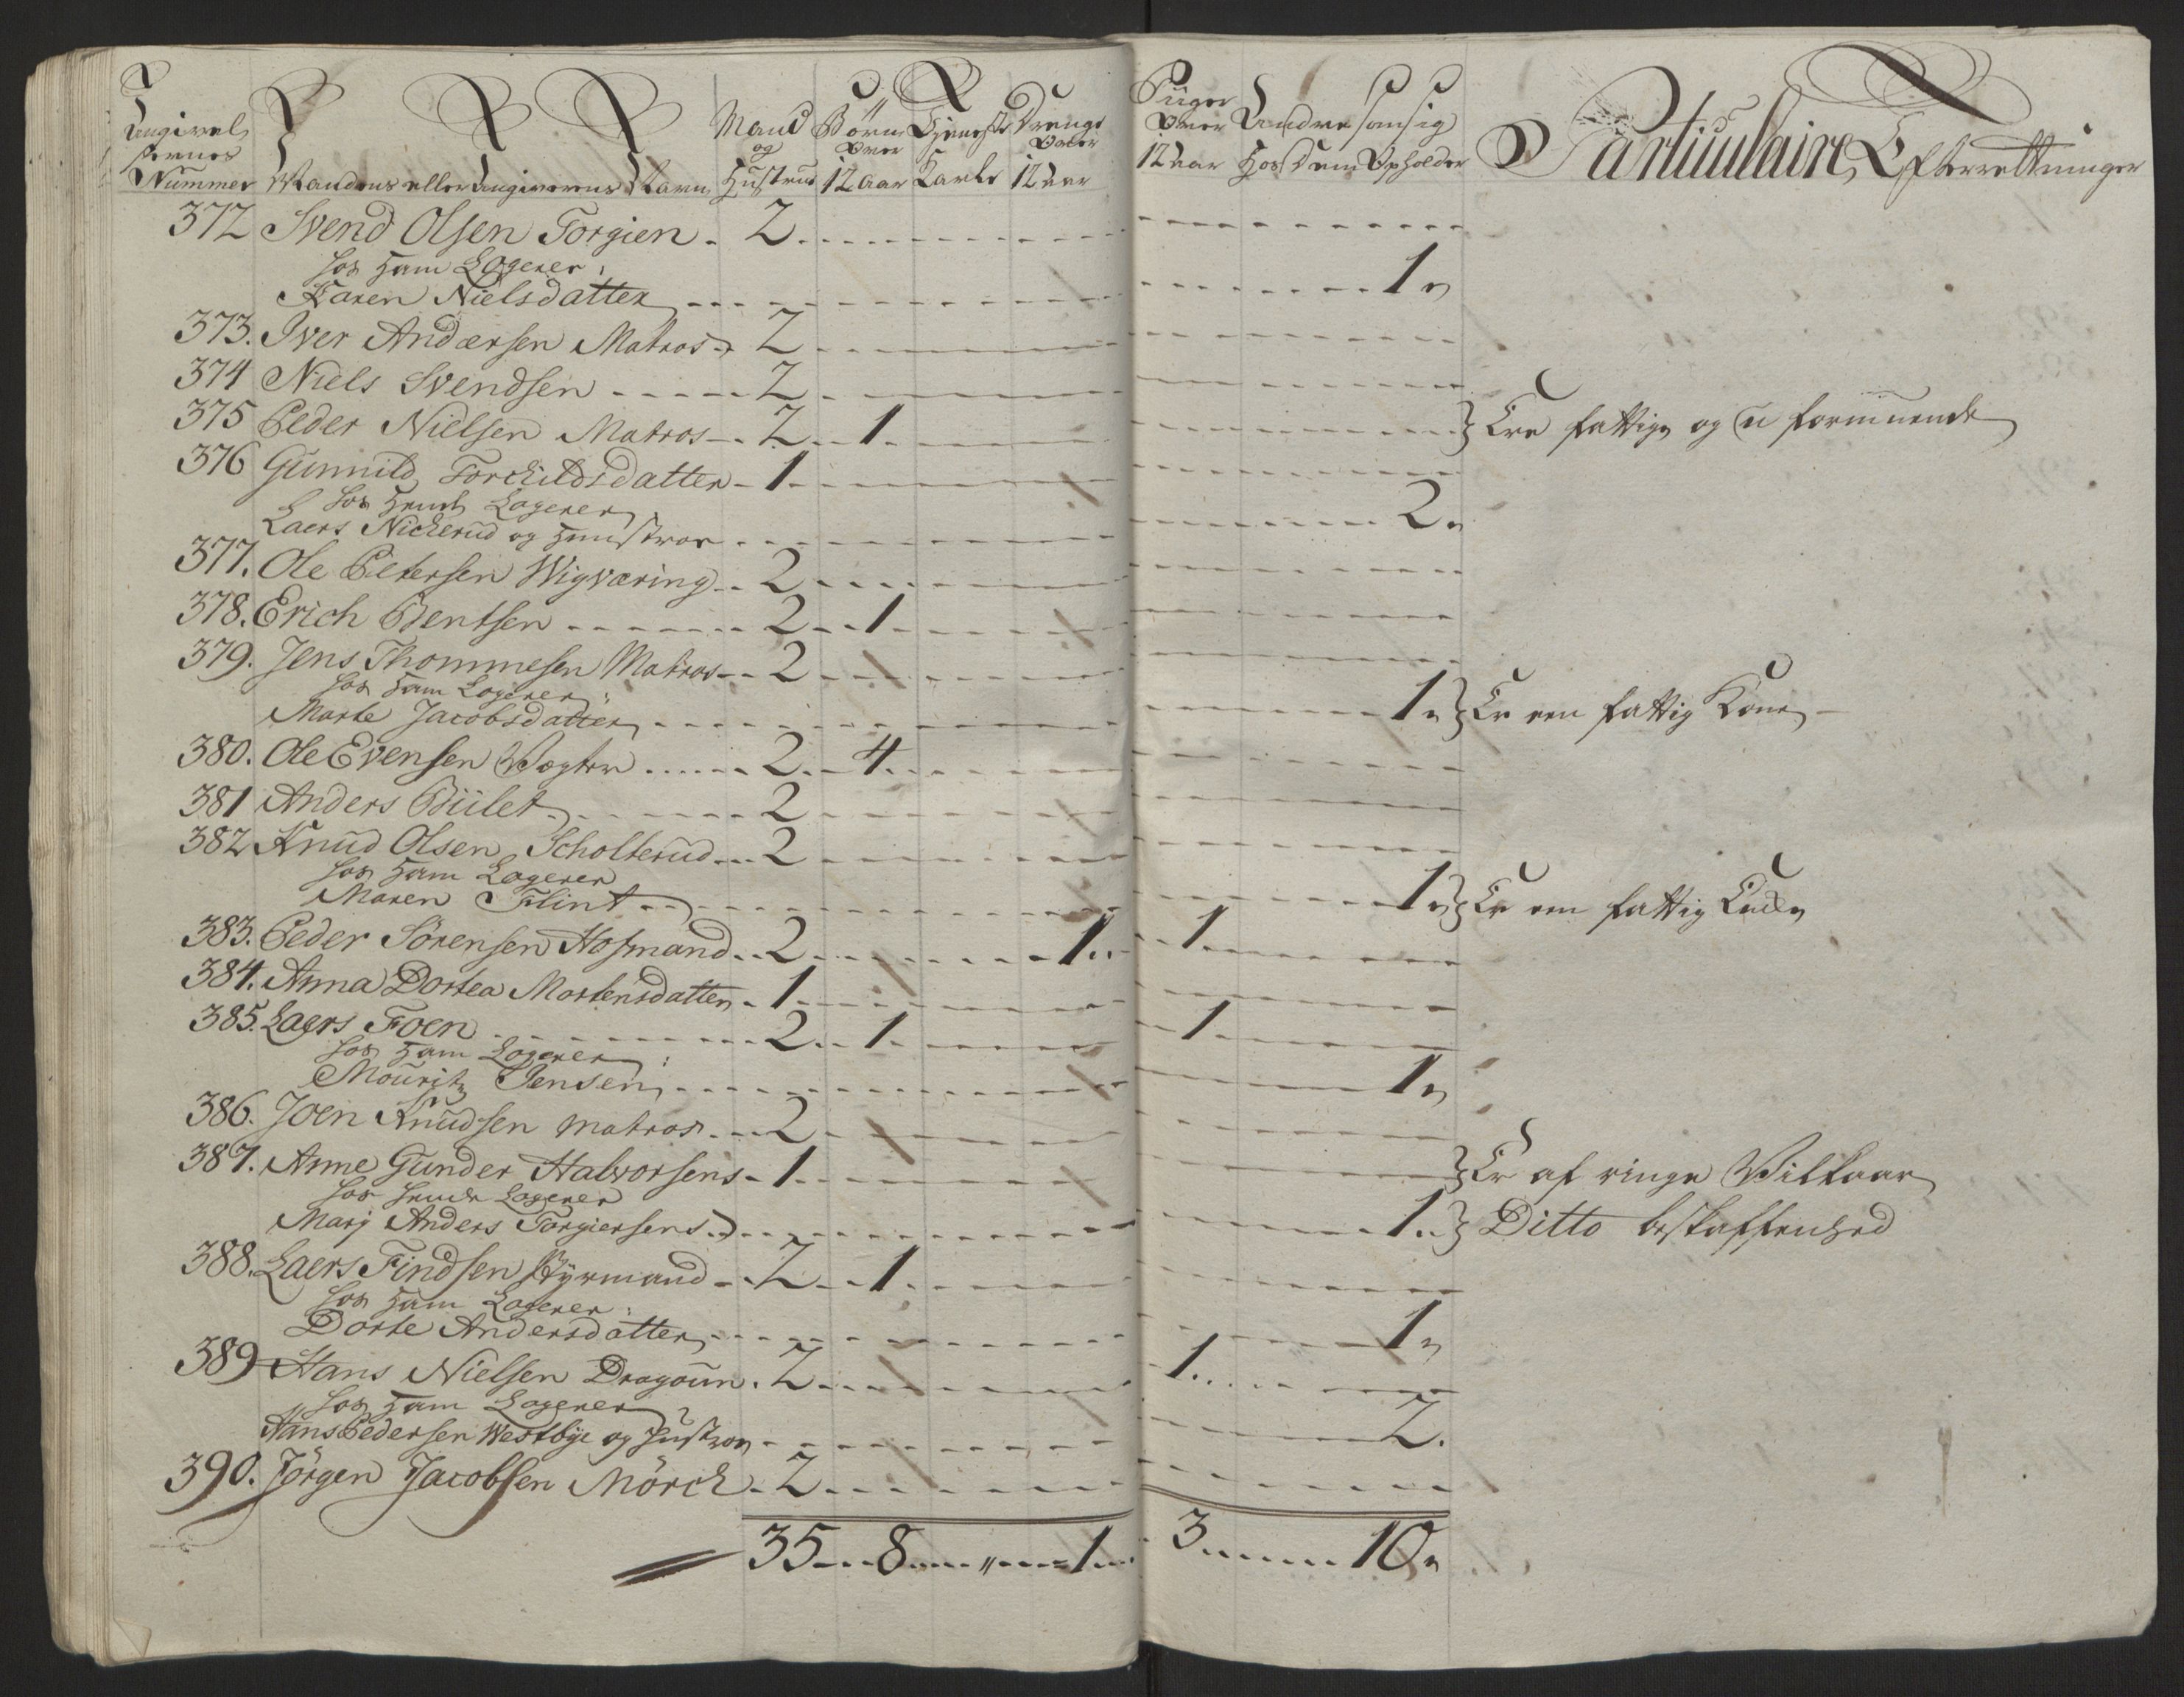 Angivel
sernes
Nummer
Mandens eller Angiverens Navn
Mand og Hustrue
Börn over 12 Aar
Tjeneste Karle
Drenge over 12 Aar
Piiger over 12 Aar
Andre som sig hos dem Opholder
Particulaire Efterretninger
372 Svend Olsen Torgien . 2
hos ham Logerer
Karen Nielsdatter 1
373. Iver Andersen Matros 2
374 Niels Svendsen 2
375 Peder Nielsen Matros 2 1 } Ere fattige og u formuende
376 Gunnild Torchildsdatter 1
hos hende Logerer
Laers Nickerud og Hustroe 2
377. Ole Petersen Wigværing 2
378. Erich Bentsen 2 1
379. Jens Thommesen Matros 2
hos ham Logerer
Marte Jacobsdatter 1 } Er een fattig Kone
380. Ole Evensen Vægter 2 4
381 Anders Biilet 2
382 Knud Olsen Scholterud 2
hos ham Logerer
Maren Flint 1 } Er een fattig Encke
383. Peder Sörensen Hofmand 2 1 1
384. Anna Dortea Mortensdatter 1
385. Laers Foen 2 1 1
hos ham Logerer
Mouritz Jensen 1
386. Joen Knudsen Matros 2
387. Anne Gunder Halvorsens 1 } Er af ringe Vilkaar
hos hende Logerer
Marj Anders Torgiersens 1 } Ditto beskaffenhed
388. Laers Findsen Byemand 2 1
hos ham Logerer
Dorte Andersdatter 1
389 Hans Nielsen Dragoun 2 1
hos ham Logerer
Hans Pedersen Westbye og Hustroe 2
390. Jörgen Jacobsen Mörch 2
35 8 " 1 3 10